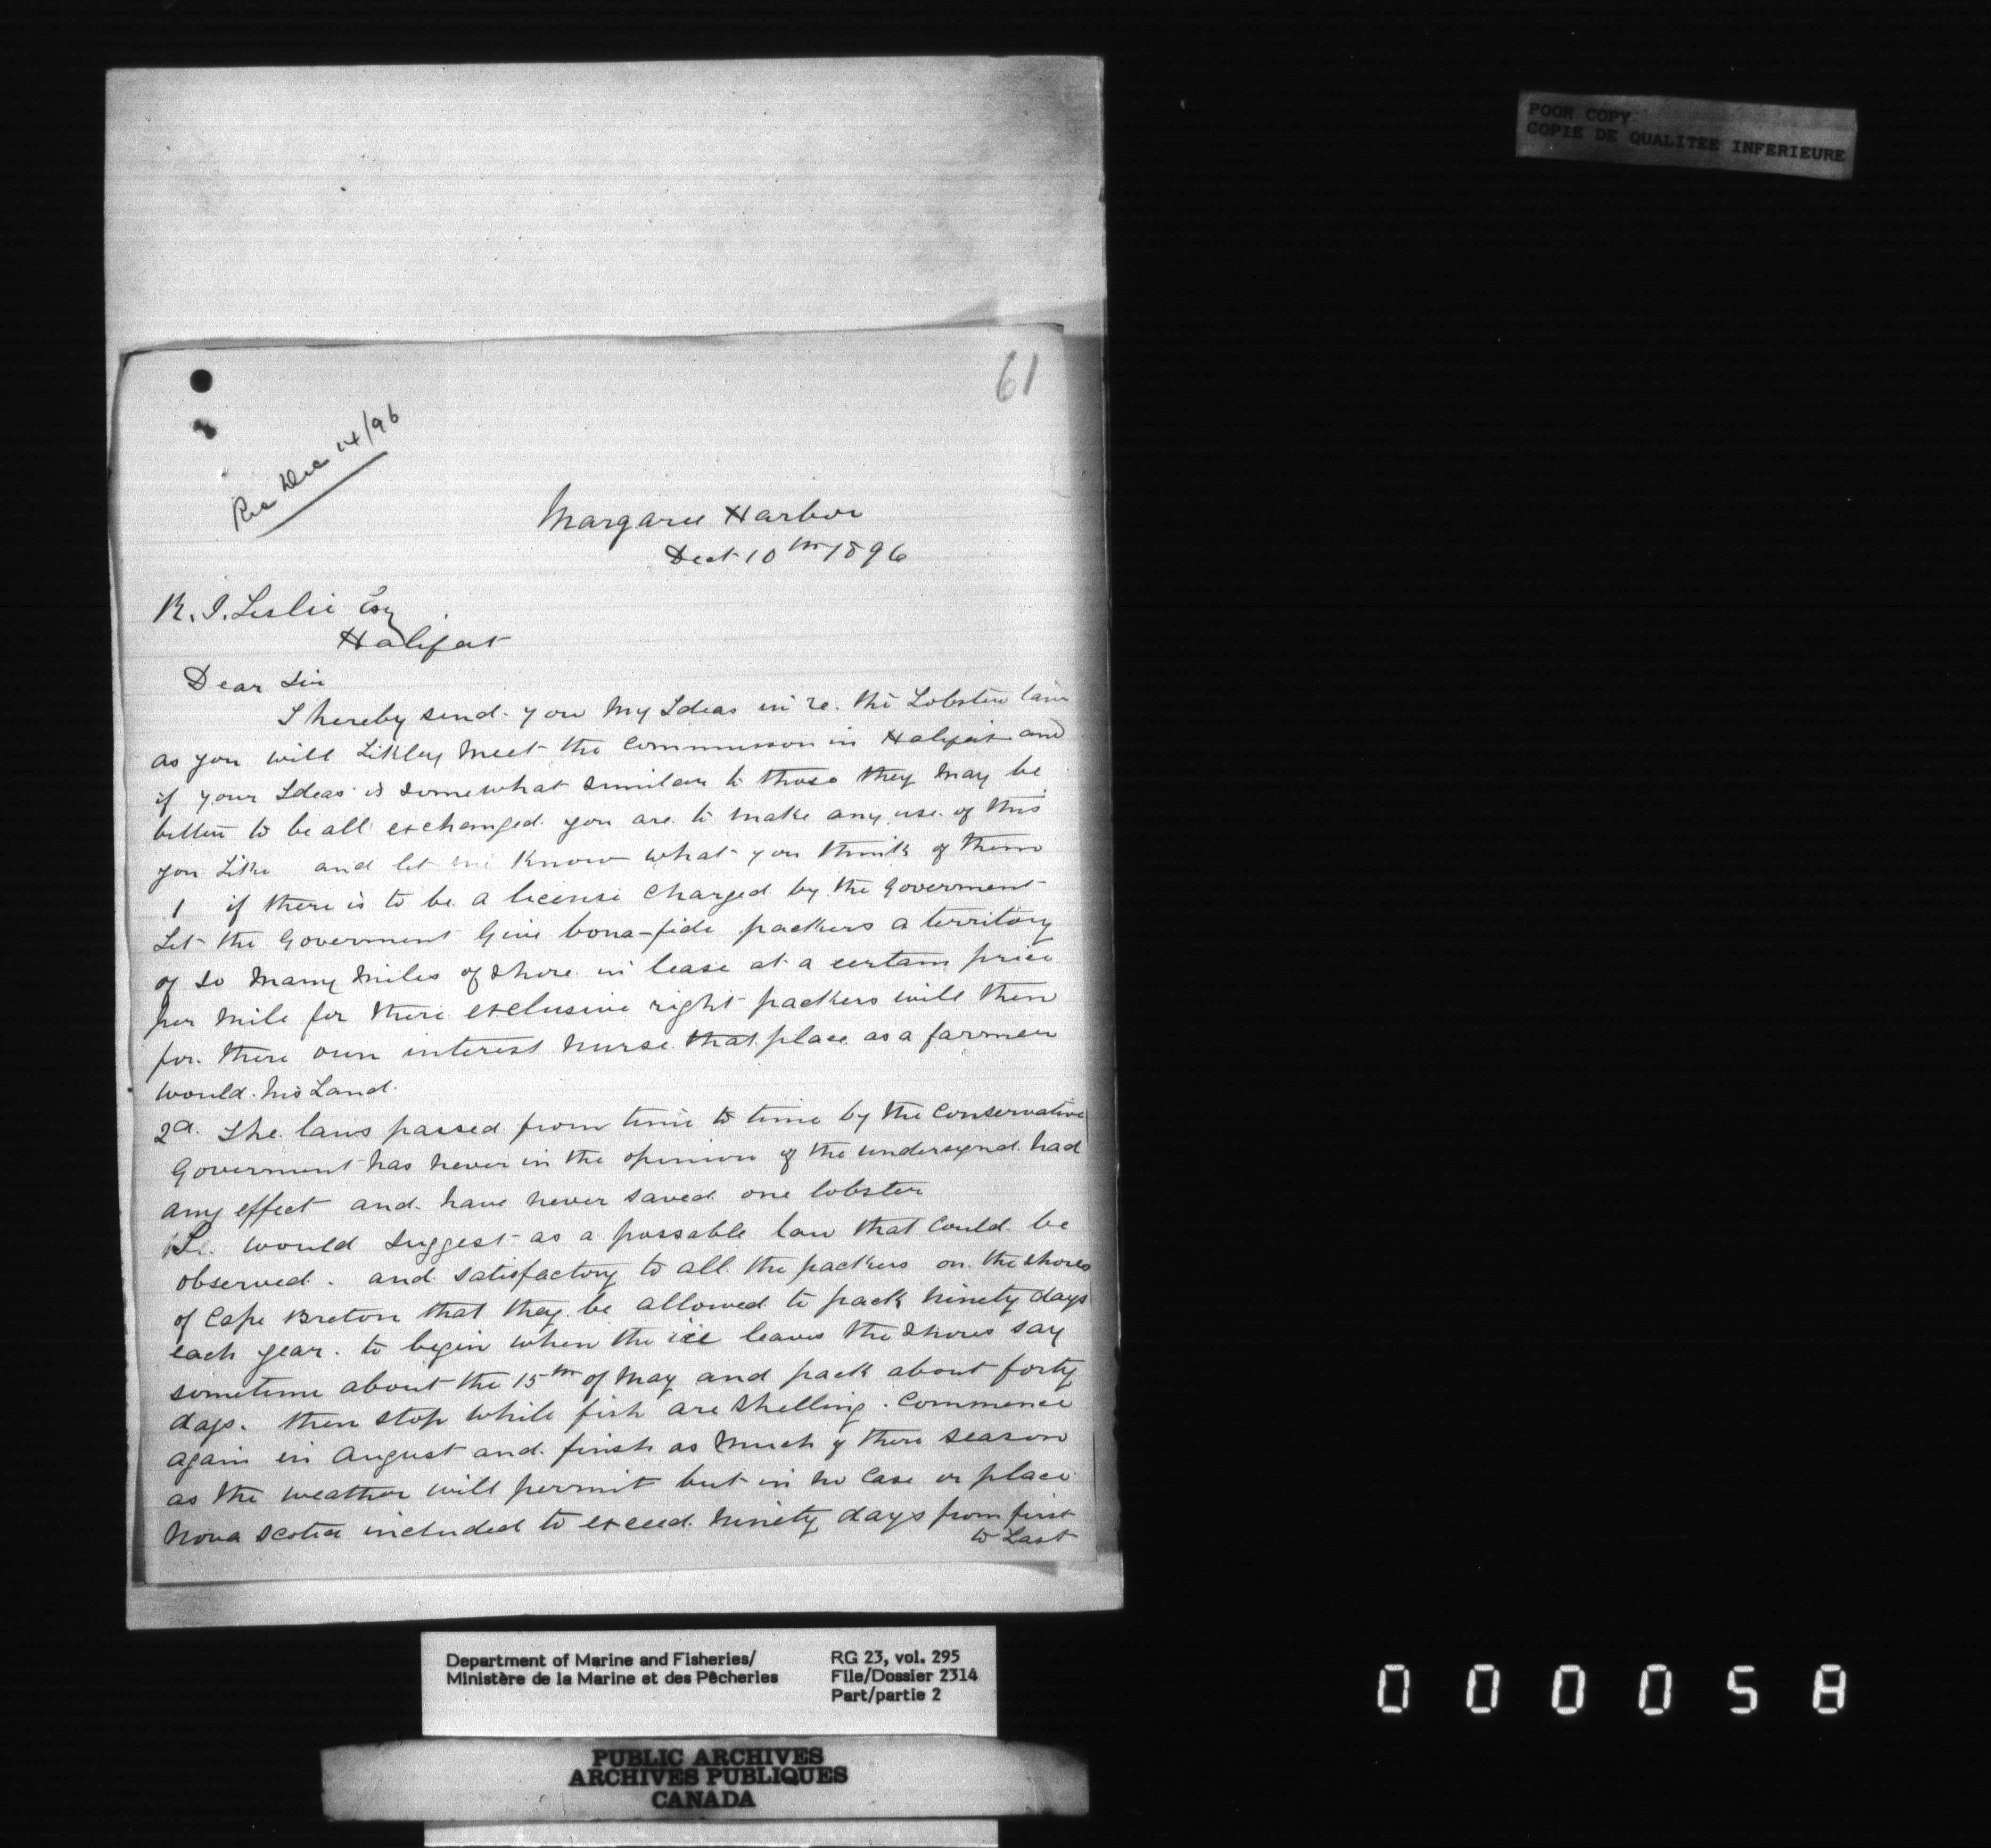 POOR COPY
COPIE DE QUALITEE INFERIEURE
61
Rec Dec 14/96
Margaree Harbor
Dect 10th 1896
R. J. Leslie Esq
Halifax
Dear Sir
I hereby send you my Ideas in re. the Lobster law
as you will Likley meet the Commission in Halifax and
if your Ideas is somewhat similar to those they may be
better to be all exchanged. you are to make any use of this
you Like and let me Know what you think of them
1 if there is to be a license charged by the Goverment
Let the Goverment Give bona-fide packers a territory
of so many miles of shore in lease at a certain price
per mile for there exclusive right packers will then
for there own interest nurse that place as a farmer
would his Land.
2d. The laws passed from time to time by the Conservative
Goverment has never in the opinion of the undersignd had
any effect and have never saved one lobster
I would suggest as a possable law that could be
observed. and satisfactory to all the packers on the shores
of Cape Breton that they be allowed to pack ninety days
each year. to begin when the ice leaves the shores say
sometime about the 15th of may and pack about forty
days. then stop while fish are shelling. Commence
again in August and finish as much of there season
as the weather will permit but in no case or place
Nova Scotia included to exceed ninety days from first
to Last
Department of Marine and Fisheries/
Ministère de la Marine et des Pêcheries
RG 23, vol. 295
File/Dossier 2314
Part/partie 2
PUBLIC ARCHIVES
ARCHIVES PUBLIQUES
CANADA
000058